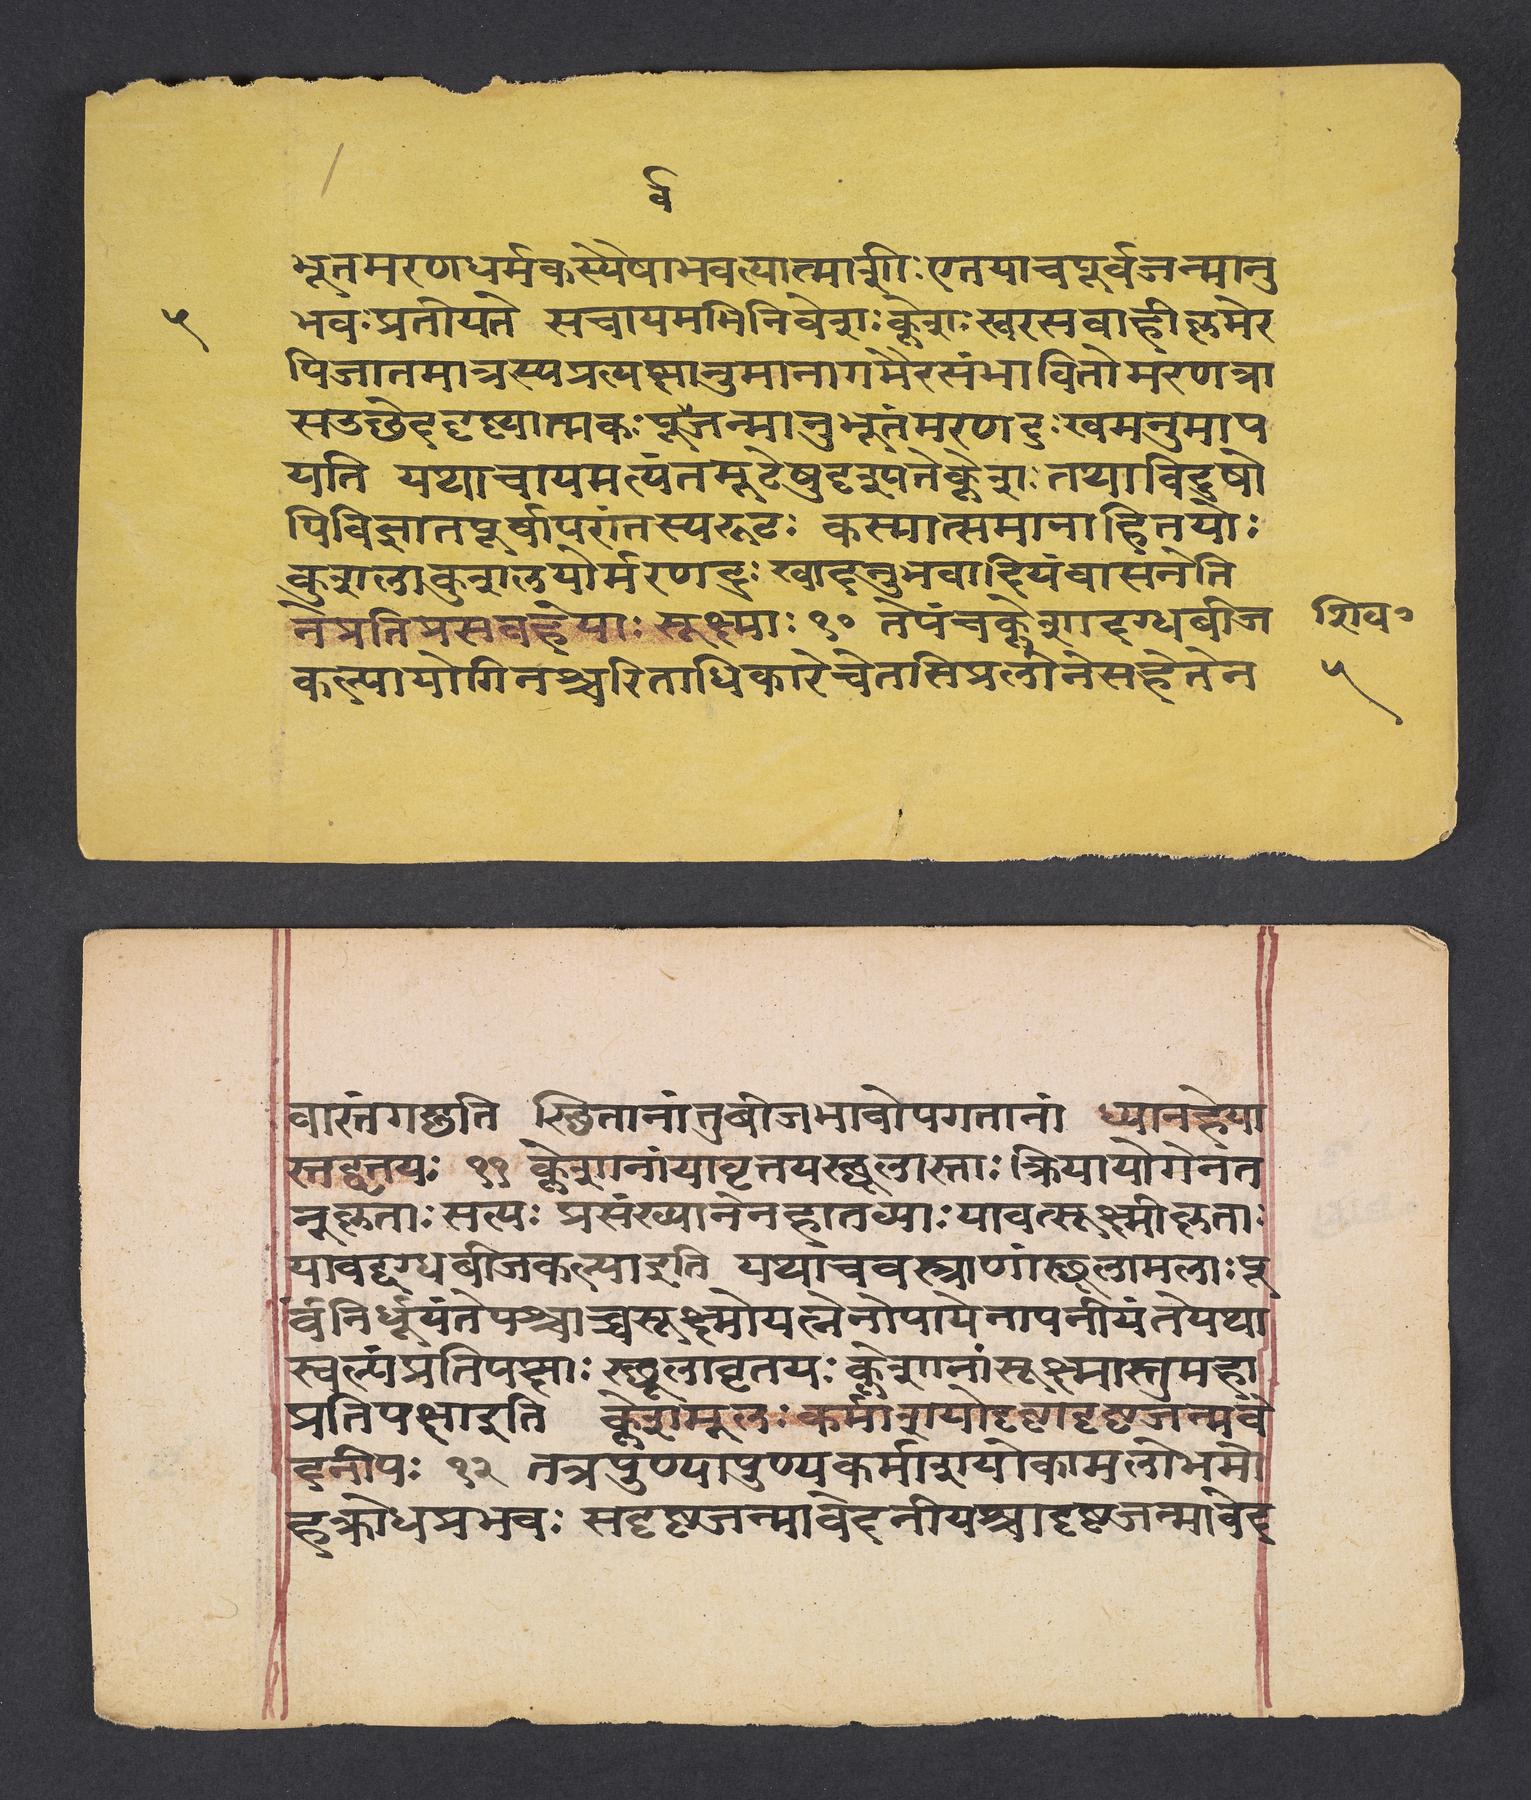 र्व
भूतमरणधर्मकस्यैषाभवत्यात्माशीः एतयाचपूर्वजन्मानु
भवः प्रतीयते सचायमभिनिवेशः क्लेशः स्वरसवाहीकृमेर
५
पिजातमात्रस्यप्रत्यक्षानुमानागमैरसंभावितोमरणत्रा
सउछेददृष्ट्यात्मकः पूजन्मानुभूतंमरणदुःखमनुमाप
यति यथाचायमत्यंतमूढेषुदृश्यतेक्लेशः तथाविदुषो
पिविज्ञातपूर्वापरांतस्यरूढः कस्मात्समानाहितयोः
कुशलाकुशलयोर्मरणदुःखादनुभवादियंवासनेति
तेप्रतिप्रसवहेयाः सूक्ष्माः १० तेपंचक्लेशादग्धबीज
शिव॰
कल्पायोगिनश्चरिताधिकारेचेतसिप्रलीनेसहतेन
५
वास्तंगछति स्थितानांतुबीजभावोपगतानां ध्यानहेया
स्तद्वृत्तयः ११ क्लेशानांयावृत्तयस्थूलास्ताः क्रियायोगेनत
नूकृताः सत्यः प्रसंख्यानेनहातव्याः यावत्सूक्ष्मीकृताः
यावद्दग्धबीजकल्पाइति यथाचवस्त्राणांस्थूलामलाः पू
र्वंनिर्धूयंतेपश्चाच्चसूक्ष्मोयत्नेनोपायेनापनीयंतेयथा
स्वल्पप्रतिपक्षाः स्थूलावृतयः क्लेशानांसूक्ष्मास्तुमहा
प्रतिपक्षाइति क्लेशमूलः कर्माशयोदृष्टादृष्टजन्मवे
दनीयः १२ तत्रपुण्यापुण्यकर्माशयोकामलोभमो
हक्रोधप्रभवः सदृष्टजन्मावेदनीयश्चादृष्टजन्मावेद